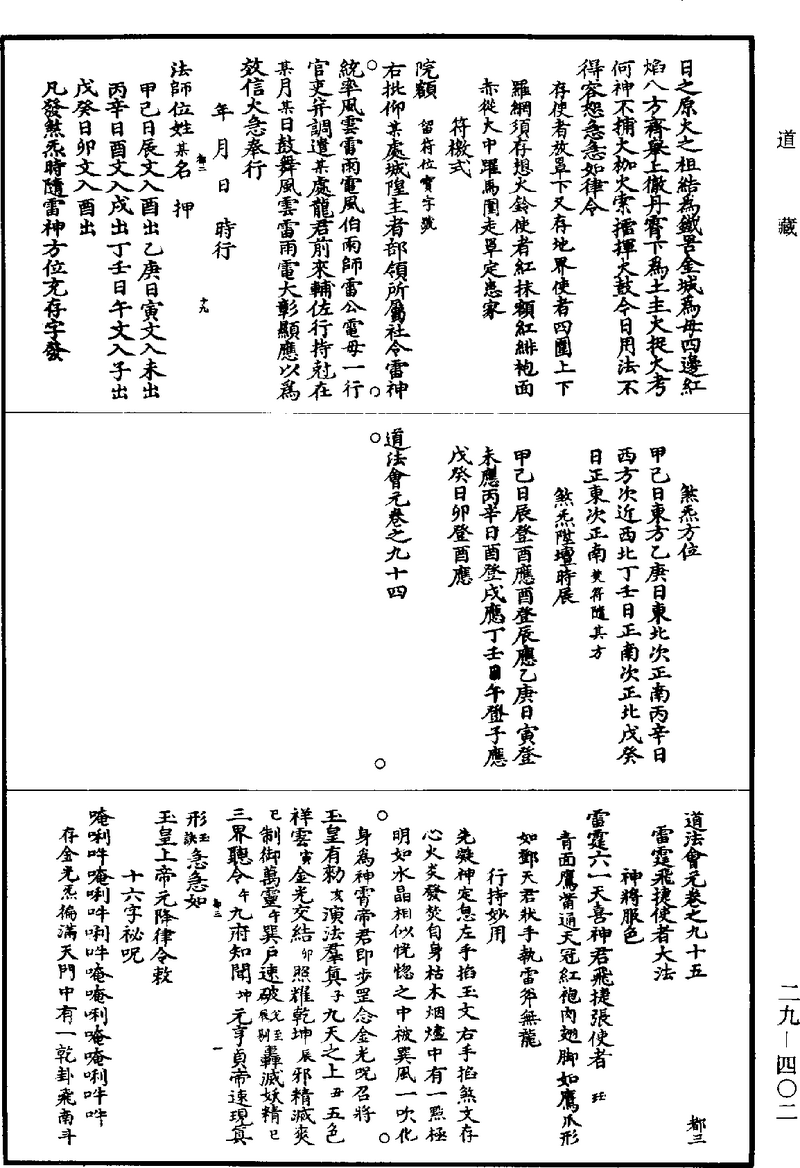 道藏
二九—四〇二
日之原火之祖結為鐵罟金城為毋四邊紅
焰八方齊舉上徹丹霄下為土主火捉火考
何神不捕大枷火索擂揮大鼓今日用法不
得容恕急急如律令
存使者放罩下又存地界使者四圍上下
羅網須存想火鈴使者紅抹額紅緋袍面
赤從大中躍馬圍走罩定患家
符檄式
院額 留符位寳字號
右批仰某處城隍主者部領所屬社令雷神
統率風雲雷雨電風伯雨師雷公電母一行
官吏并調遣某處龍君前來輔佐行持尅在
某月某日鼓舞風雲雷雨電大彰顯應以為
效信火急奉行
年 月 日 時行
都二 十九
法師位姓某名 押
甲己日辰文入酉出乙庚日寅文入未出
丙辛日酉文入戌出丁壬日午文入子出
戊癸日卯文入酉出
凡發煞炁時隨雷神方位充存字發
煞炁方位
甲己日東方乙庚日東北次正南丙辛日
西方次近西北丁壬日正南次正北戊癸
日正東次正南焚符隨其方
煞炁陞壇時辰
甲己日辰登酉應酉登辰應乙庚日寅登
未應丙辛日酉登戌應丁壬日午登子應
戊癸日卯登酉應
道法會元卷之九十四
道法會元卷之九十五 都三
雷霆飛捷使者大法
神將服色
雷霆六一天喜神君飛捷張使者 珏
青面鷹嘴通天冠紅袍肉翅脚如鷹爪形
如鄧天君狀手執雷斧無龍
行持妙用
先凝神定息左手掐玉文右手掐煞文存
心火炎發焚自身枯木烟爐中有一點極
明如水晶相似恍惚之中被巽風一吹化
身為神霄帝君即步罡念金光呪召將
玉皇有勑亥演法羣真子九天之上丑五色
祥雲寅金光交結卯照耀乾坤辰邪精滅爽
巳制御萬靈午巽戶速破轟滅妖精巳
三界聽令午九府知聞坤元亨貞帝速現真
都三 一
形玉訣急急如
玉皇上帝元降律令敕
十六字祕呪
唵唎吽唵唎吽唎吽唵唵唎唵唵唎吽吽
存金光炁徧滿天門中有一乾卦飛南斗